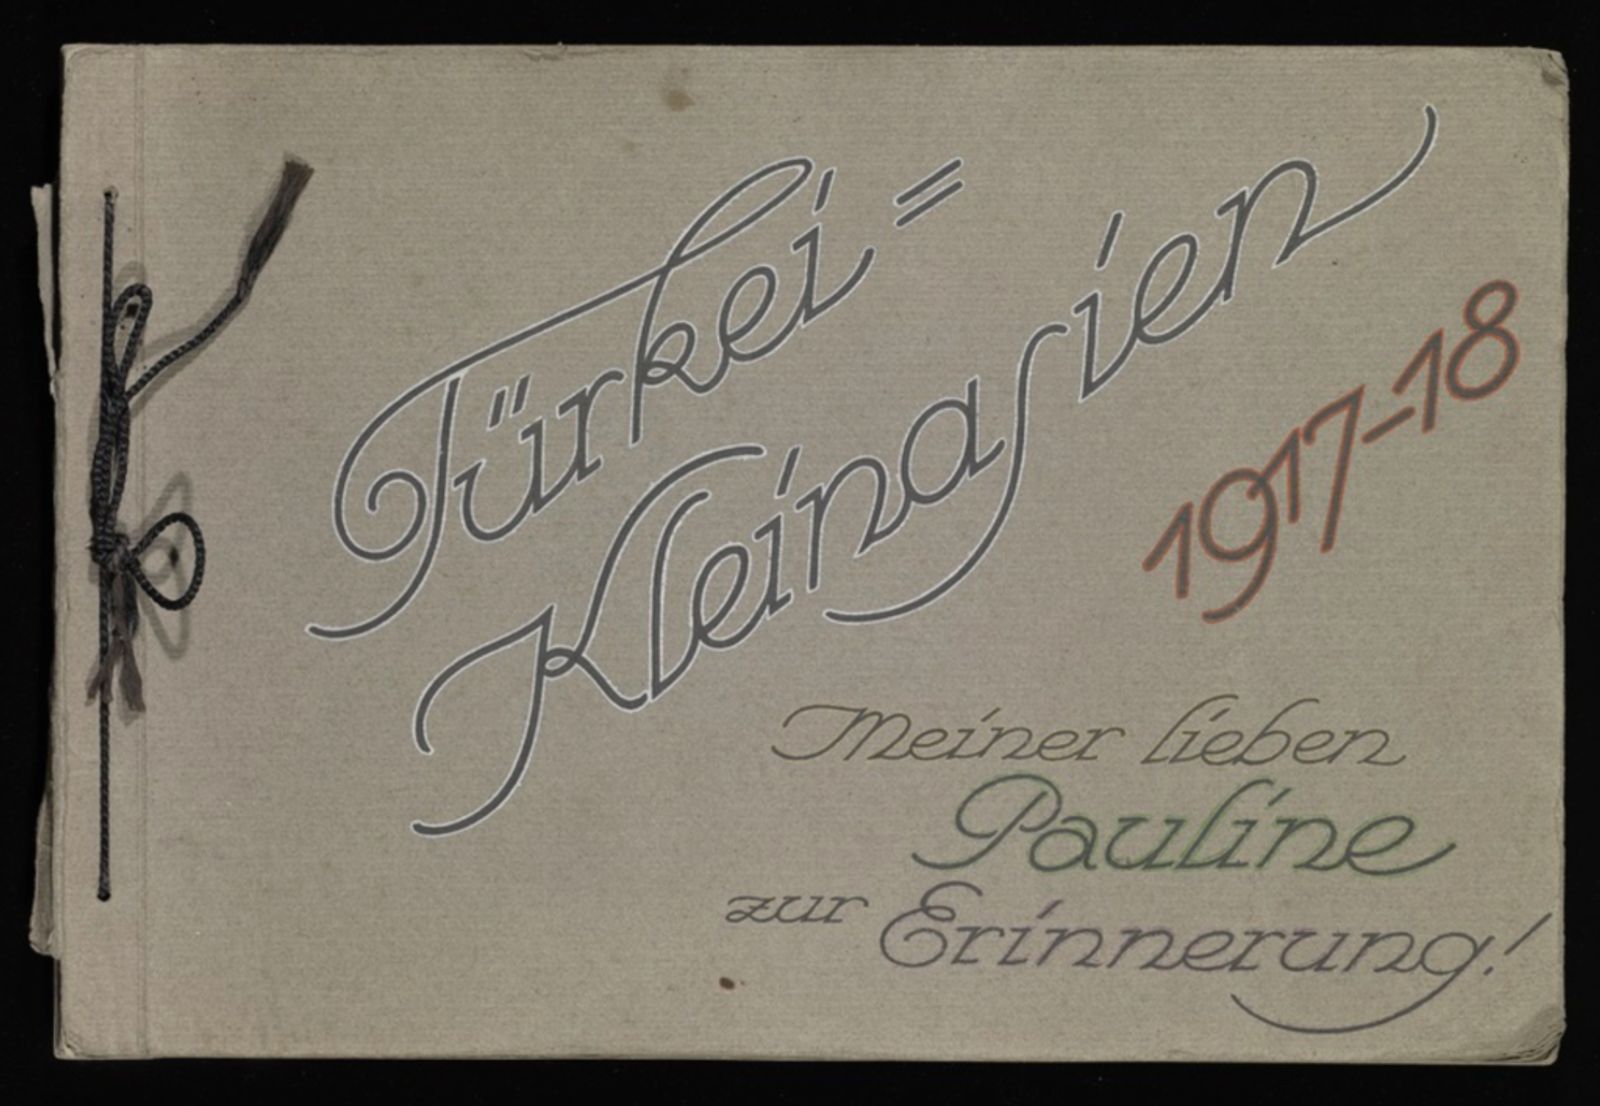 Türkei=
Kleinasien
1917-18
Meiner lieben
Pauline
zur Erinnerung!